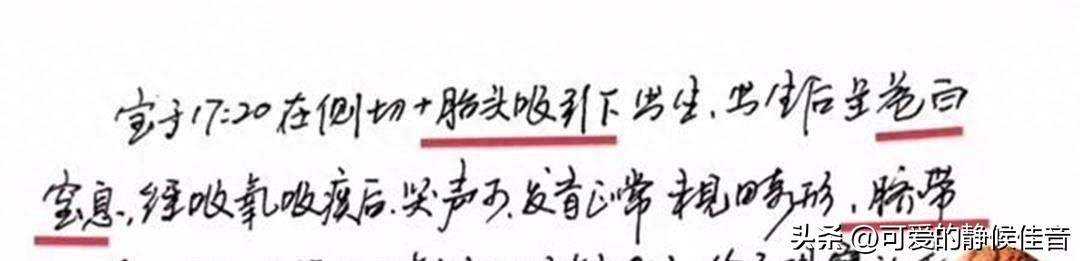 宝于17:20在侧切+胎头吸引下出生,出生后呈苍白
窒息,经吸氧吸痰后.哭声可,发育正常 未见畸形,脐带
头条 @可爱的静候佳音